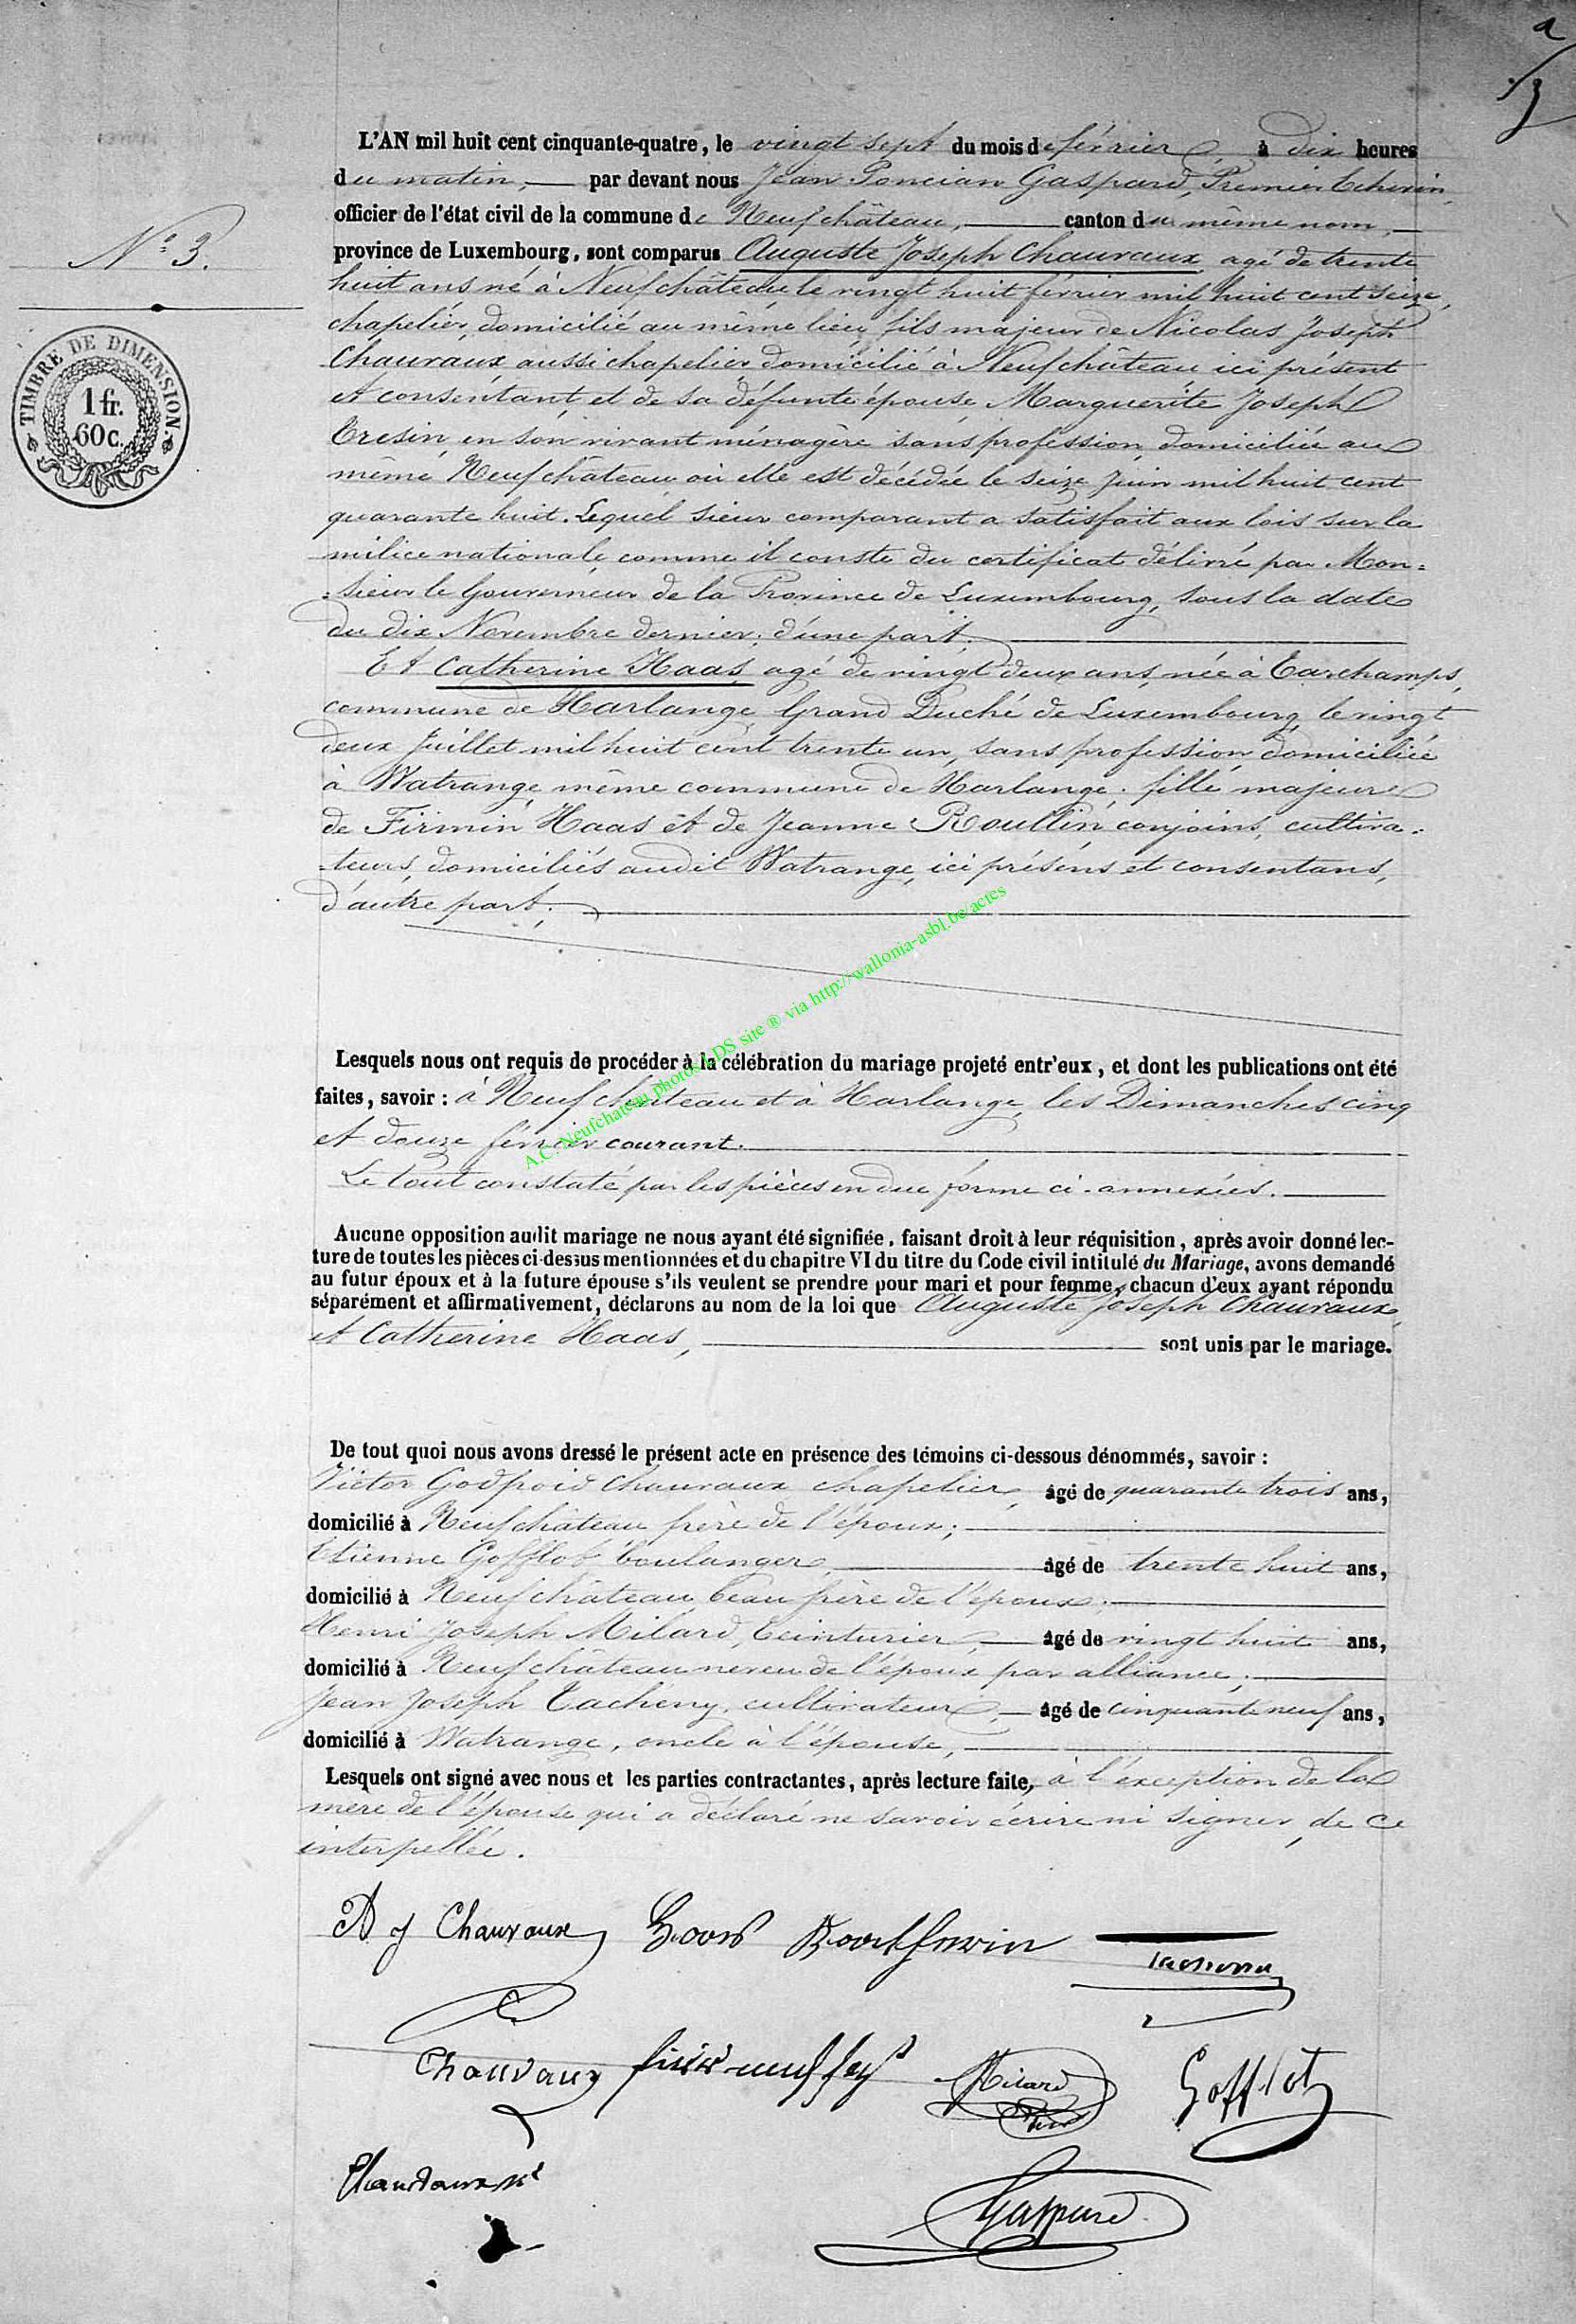 a/3
L'AN mil huit cent cinquante-quatre, le vingt sept du mois de février à dix heures
du matin, par devant nous Jean Poncian Gaspard, Premier Echevin
officier de l'état civil de la commune de Neufchâteau, canton du même nom,
N° 3.
province de Luxembourg, sont comparus Auguste Joseph Chauvaux agé de trente
huit ans né à Neufchâteau le vingt huit février mil huit cent seize,
chapelier, domicilié au même lieu, fils majeur de Nicolas Joseph
Chauvaux aussi chapelier domicilié à Neufchâteau ici présent
TIMBRE DE DIMENSION.
1 fr.
60 c.
et consentant, et de sa défunte épouse Marguerite Joseph
Tresin, en son vivant ménagère sans profession, domiciliée au
même Neufchâteau où elle est décédée le seize Juin mil huit cent
quarante huit. Lequel sieur comparant a satisfait aux lois sur la
milice nationale, comme il conste du certificat délivré par Mon=
=sieur le Gouverneur de la Province de Luxembourg, sous la date
du dix Novembre dernier; d'une part;
Et Catherine Haas, agé de vingt deux ans, née à Tarchamps,
commune de Harlange, Grand Duché de Luxembourg, le vingt
deux Juillet mil huit cent trente un, sans profession domiciliée
à Watrange, même commune de Harlange; fille majeure
de Firmin Haas et de Jeanne Roullin, conjoins, cultiva=
=teurs, domiciliés audit Watrange, ici présens et consentans,
d'autre part;
A.C. Neufchateau photos ADS site ® via http://wallonia-asbl.be/actes
Lesquels nous ont requis de procéder à la célébration du mariage projeté entr'eux, et dont les publications ont été
faites, savoir : à Neufchâteau et à Harlange, les Dimanches cinq
et douze février courant.
Le tout constaté par les pièces en due forme ci-annexées.
Aucune opposition audit mariage ne nous ayant été signifiée, faisant droit à leur réquisition, après avoir donné lec-
ture de toutes les pièces ci-dessus mentionnées et du chapitre VI du titre du Code civil intitulé du Mariage, avons demandé
au futur époux et à la future épouse s'ils veulent se prendre pour mari et pour femme, chacun d'eux ayant répondu
séparément et affirmativement, déclarons au nom de la loi que Auguste Joseph Chauvaux,
et Catherine Haas, sont unis par le mariage.
De tout quoi nous avons dressé le présent acte en présence des témoins ci-dessous dénommés, savoir :
Victor Godfroid Chauvaux chapelier, âgé de quarante trois ans,
domicilié à Neufchâteau frère de l'époux;
Etienne Gofflot boulanger, âgé de trente huit ans,
domicilié à Neufchâteau, beau frère de l'époux;
Henri Joseph Milard, teinturier, âgé de vingt huit ans,
domicilié à Neufchâteau neveu de l'époux par alliance;
Jean Joseph Tacheny, cultivateur, âgé de cinquante neuf ans,
domicilié à Watrange, oncle à l'épouse,
Lesquels ont signé avec nous et les parties contractantes, après lecture faite, à l'exception de la
mère de l'épouse qui a déclaré ne savoir écrire ni signer, de ce
interpellée.
A J Chauvaux
Chauvaux
Milard
Gofflot
Gaspard